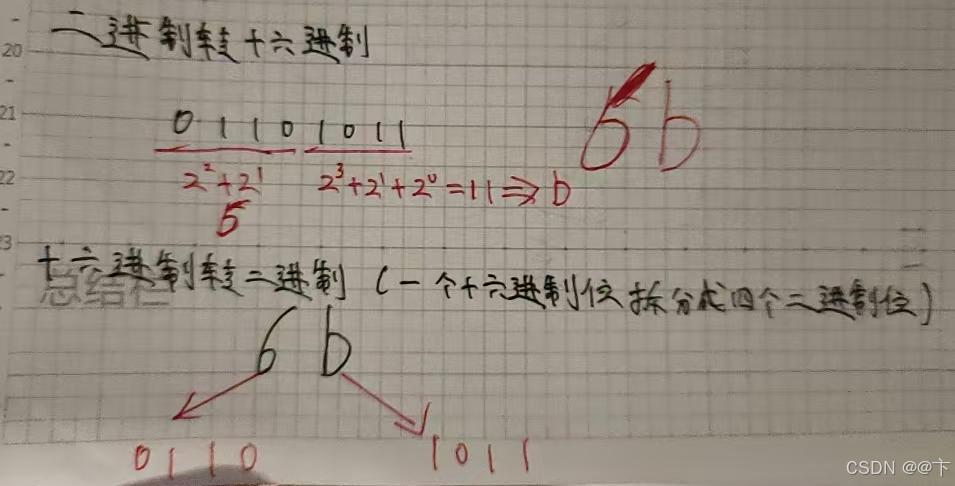 二进制转十六进制
20
21
0 1 1 0 1 0 1 1
6b
22
2²+2¹ 2³+2¹+2⁰=11⇒b
5
23
十六进制转二进制 (一个十六进制位拆分成四个二进制位)
总结栏
6 b
0 1 1 0 1 0 1 1
CSDN @@卞